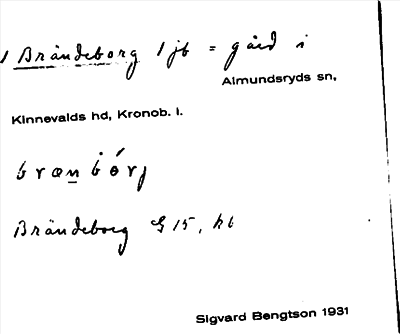 1 Brändeborg 1 jb = gård i
Almundsryds sn,
Kinnevalds hd, Kronob. l.
Brändeborg G 15, kb
Sigvard Bengtson 1931